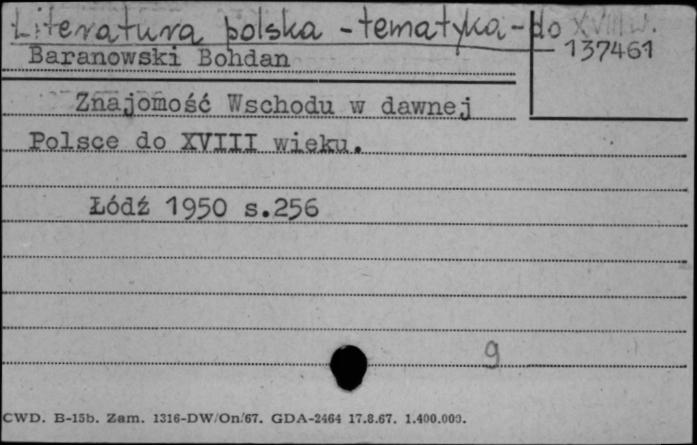 Literatura polska - tematyka - do XVIII w.
137461
Baranowski Bohdan
Znajomość Wschodu w dawnej
Polsce do XVIII wieku.
Łódź 1950 s.256
9
CWD. B-15b. Zam. 1316-DW/On/67. GDA-2464 17.8.67. 1.400.000.